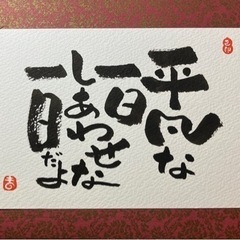 平凡な
一日
しあわせな
一日だよ